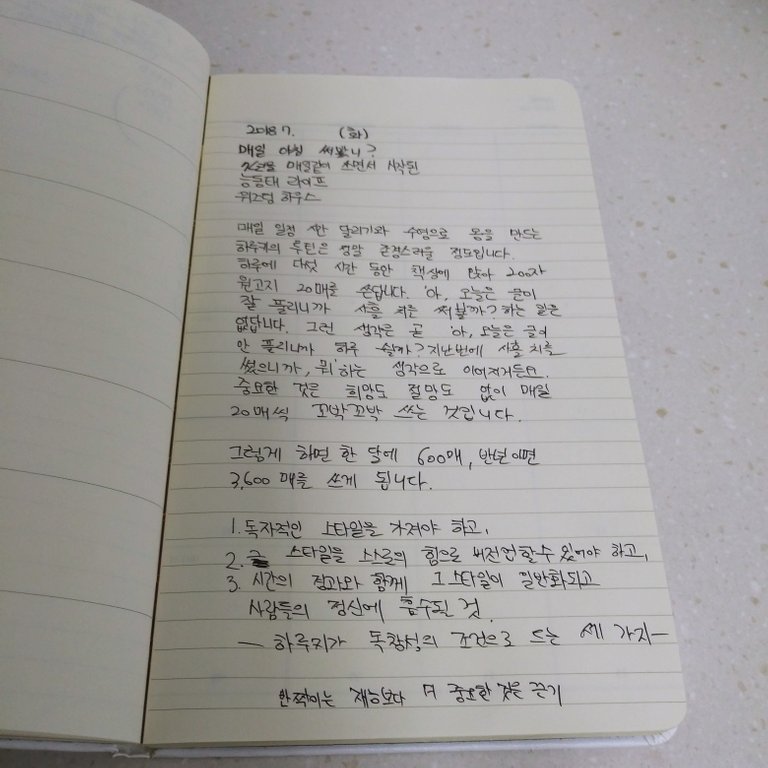 2018 7. (화)
매일 아침 써봤니?
매일같이 쓰면서 시작된
능동태 라이프
위즈덤 하우스
매일 일정 시간 달리기와 수영으로 몸을 만드는
하루키의 루틴은 정말 존경스러울 정도입니다.
하루에 다섯 시간 동안 책상에 앉아 200자
원고지 20매를 쓴답니다. '아, 오늘은 글이
잘 풀리니까 사흘 치를 써볼까? 하는 일은
없답니다. 그런 생각은 곧 '아, 오늘은 글이
안 풀리니까 하루 쉴까? 지난번에 사흘 치를
썼으니까, 뭐'하는 생각으로 이어지거든요.
중요한 것은 희망도 절망도 없이 매일
20매씩 꼬박꼬박 쓰는 것입니다.
그렇게 하면 한 달에 600매, 반년이면
3,600매를 쓰게 됩니다.
1. 독자적인 스타일을 가져야 하고,
2. 스타일을 스스로의 힘으로 버전업할 수 있어야 하고,
3. 시간의 경과와 함께 그 스타일이 일반화되고
사람들의 정신에 흡수된 것.
- 하루키가 독창성의 조건으로 드는 세 가지 -
반짝이는 재능보다 더 중요한 것은 끈기